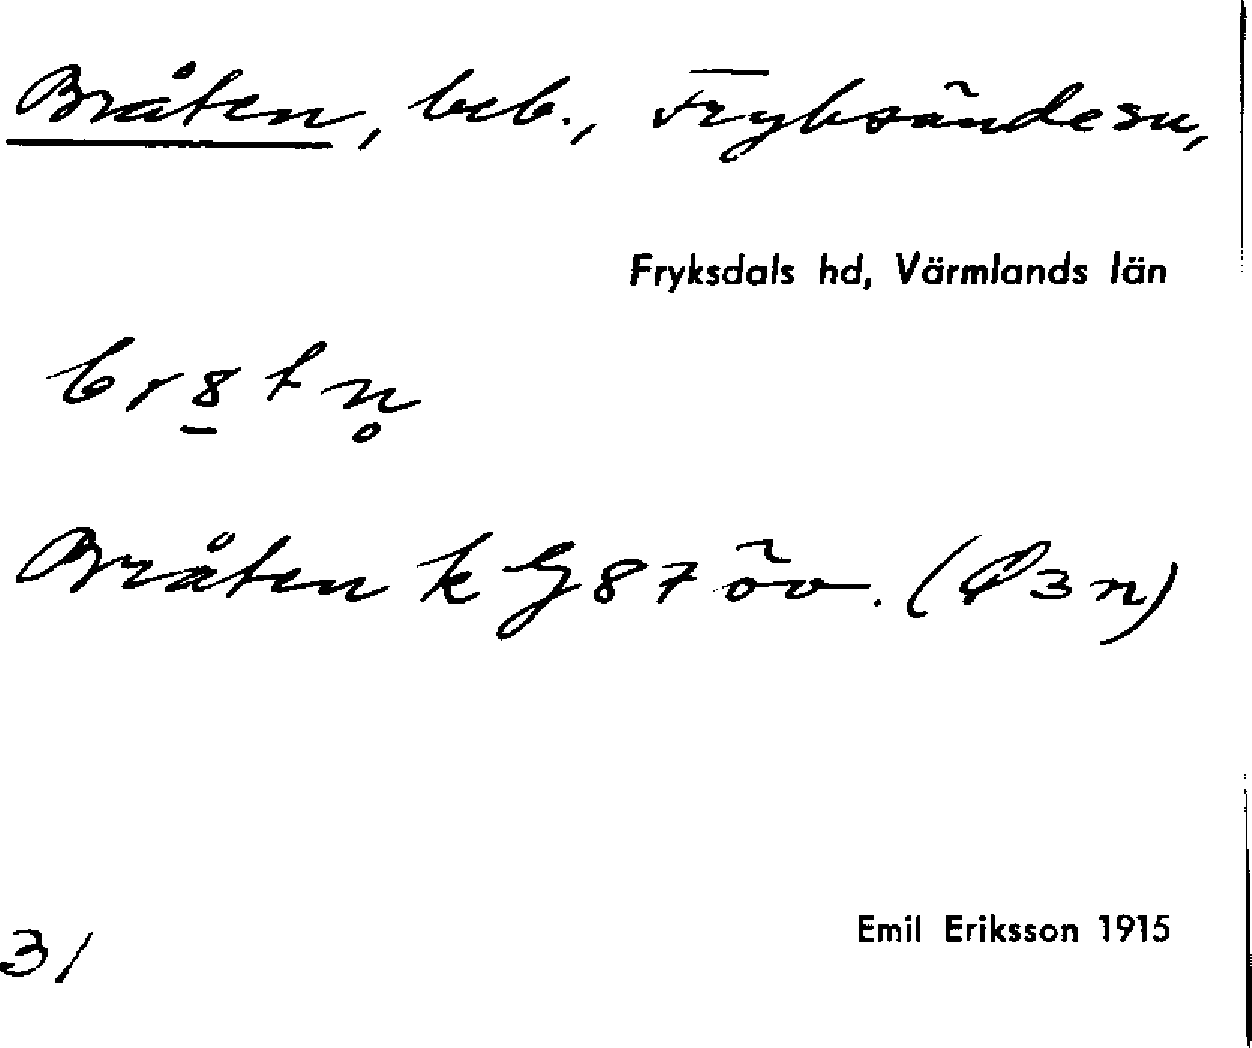 Bråten, beb., Fryksände sn,
Fryksdals hd, Värmlands län
br8tn̥
Bråten k G 87 öv. (Ö 3 n)
31
Emil Eriksson 1915